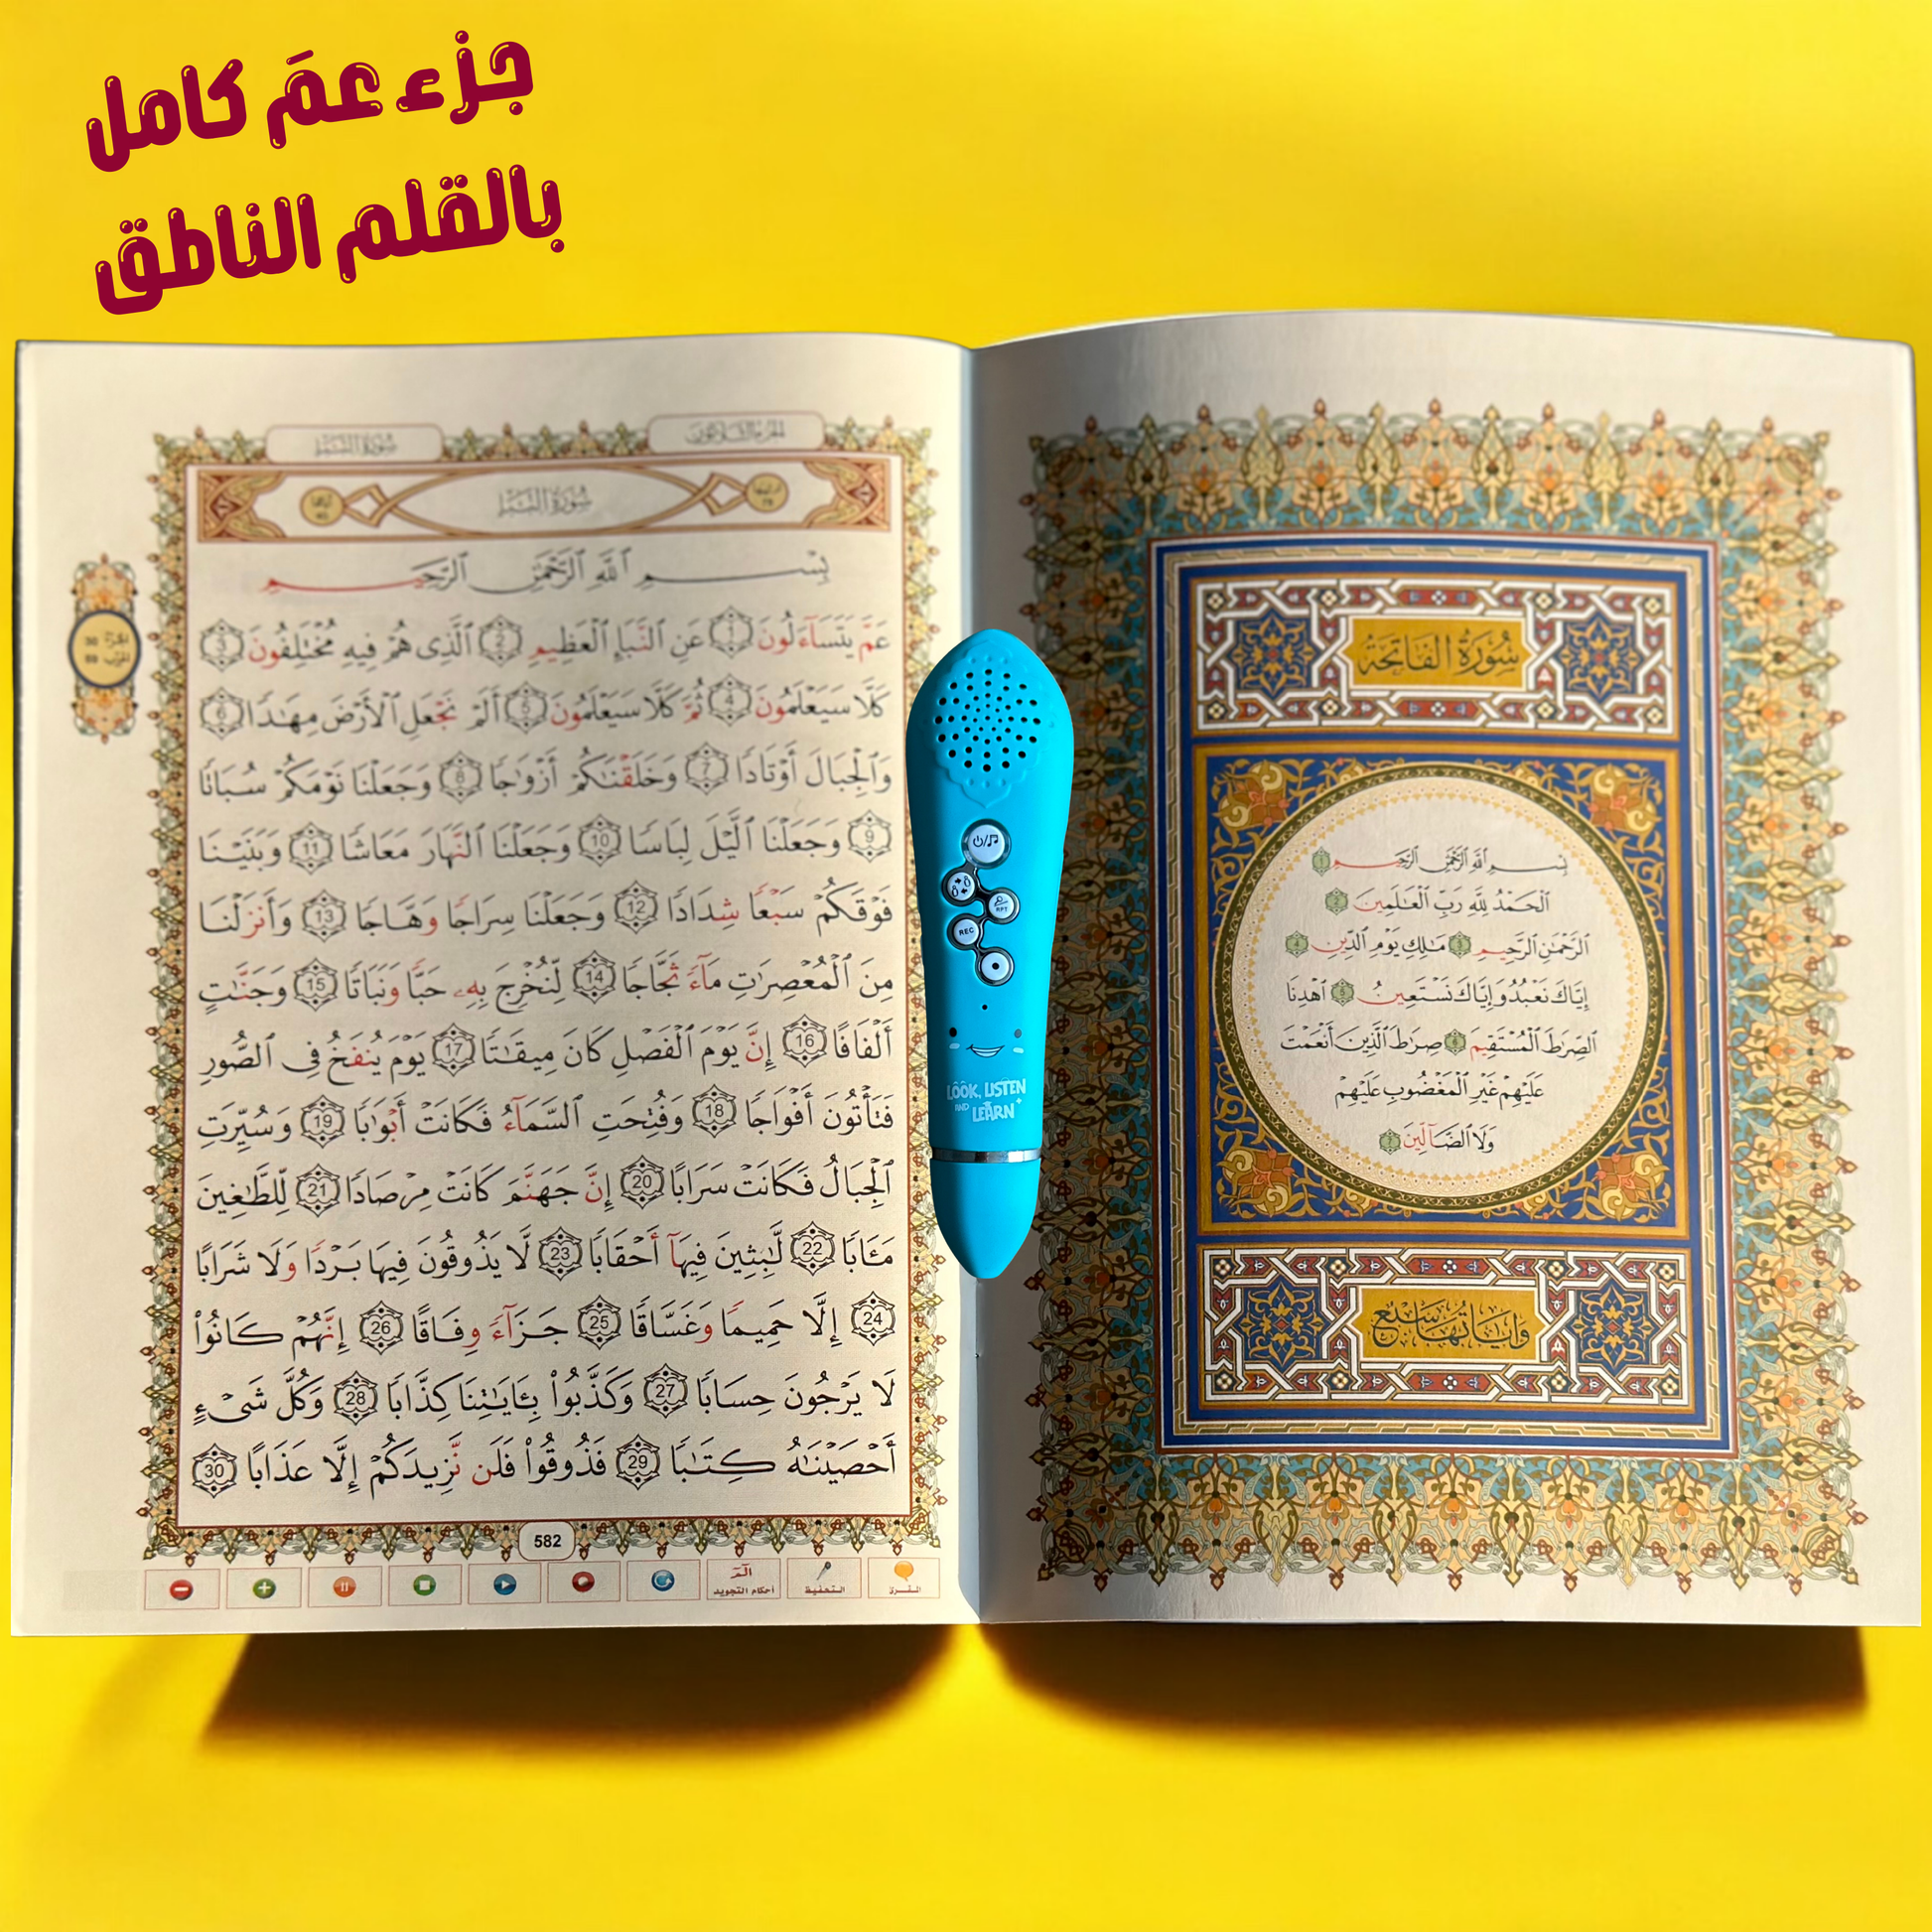 جزء عمَ كامل
بالقلم الناطق
سُورَةُ الفَاتِحَةِ
بِسْمِ ٱللَّهِ ٱلرَّحْمَٰنِ ٱلرَّحِيمِ 1
ٱلْحَمْدُ لِلَّهِ رَبِّ ٱلْعَٰلَمِينَ 2
ٱلرَّحْمَٰنِ ٱلرَّحِيمِ 3 مَٰلِكِ يَوْمِ ٱلدِّينِ 4
إِيَّاكَ نَعْبُدُ وَإِيَّاكَ نَسْتَعِينُ 5 ٱهْدِنَا
ٱلصِّرَٰطَ ٱلْمُسْتَقِيمَ 6 صِرَٰطَ ٱلَّذِينَ أَنْعَمْتَ
عَلَيْهِمْ غَيْرِ ٱلْمَغْضُوبِ عَلَيْهِمْ
وَلَا ٱلضَّآلِّينَ 7
وَآيَاتُهَا سَبْعٌ
LOOK, LISTEN
AND LEARN
الجزء الثلاثون سُورَةُ النَّبَإِ
سُورَةُ النَّبَإِ
الجزء 30
بِسْمِ ٱللَّهِ ٱلرَّحْمَٰنِ ٱلرَّحِيمِ
عَمَّ يَتَسَآءَلُونَ 1 عَنِ ٱلنَّبَإِ ٱلْعَظِيمِ 2 ٱلَّذِى هُمْ فِيهِ مُخْتَلِفُونَ 3
كَلَّا سَيَعْلَمُونَ 4 ثُمَّ كَلَّا سَيَعْلَمُونَ 5 أَلَمْ نَجْعَلِ ٱلْأَرْضَ مِهَٰدًا 6
وَٱلْجِبَالَ أَوْتَادًا 7 وَخَلَقْنَٰكُمْ أَزْوَٰجًا 8 وَجَعَلْنَا نَوْمَكُمْ سُبَاتًا
9 وَجَعَلْنَا ٱلَّيْلَ لِبَاسًا 10 وَجَعَلْنَا ٱلنَّهَارَ مَعَاشًا 11 وَبَنَيْنَا
فَوْقَكُمْ سَبْعًا شِدَادًا 12 وَجَعَلْنَا سِرَاجًا وَهَّاجًا 13 وَأَنزَلْنَا
مِنَ ٱلْمُعْصِرَٰتِ مَآءً ثَجَّاجًا 14 لِّنُخْرِجَ بِهِۦ حَبًّا وَنَبَاتًا 15 وَجَنَّٰتٍ
أَلْفَافًا 16 إِنَّ يَوْمَ ٱلْفَصْلِ كَانَ مِيقَٰتًا 17 يَوْمَ يُنفَخُ فِى ٱلصُّورِ
فَتَأْتُونَ أَفْوَاجًا 18 وَفُتِحَتِ ٱلسَّمَآءُ فَكَانَتْ أَبْوَٰبًا 19 وَسُيِّرَتِ
ٱلْجِبَالُ فَكَانَتْ سَرَابًا 20 إِنَّ جَهَنَّمَ كَانَتْ مِرْصَادًا 21 لِّلطَّٰغِينَ
مَـَٔابًا 22 لَّٰبِثِينَ فِيهَآ أَحْقَابًا 23 لَّا يَذُوقُونَ فِيهَا بَرْدًا وَلَا شَرَابًا
24 إِلَّا حَمِيمًا وَغَسَّاقًا 25 جَزَآءً وِفَاقًا 26 إِنَّهُمْ كَانُوا۟
لَا يَرْجُونَ حِسَابًا 27 وَكَذَّبُوا۟ بِـَٔايَٰتِنَا كِذَّابًا 28 وَكُلَّ شَىْءٍ
أَحْصَيْنَٰهُ كِتَٰبًا 29 فَذُوقُوا۟ فَلَن نَّزِيدَكُمْ إِلَّا عَذَابًا 30
582
المقرئ التحفيظ أحكام التجويد
REC
RPT